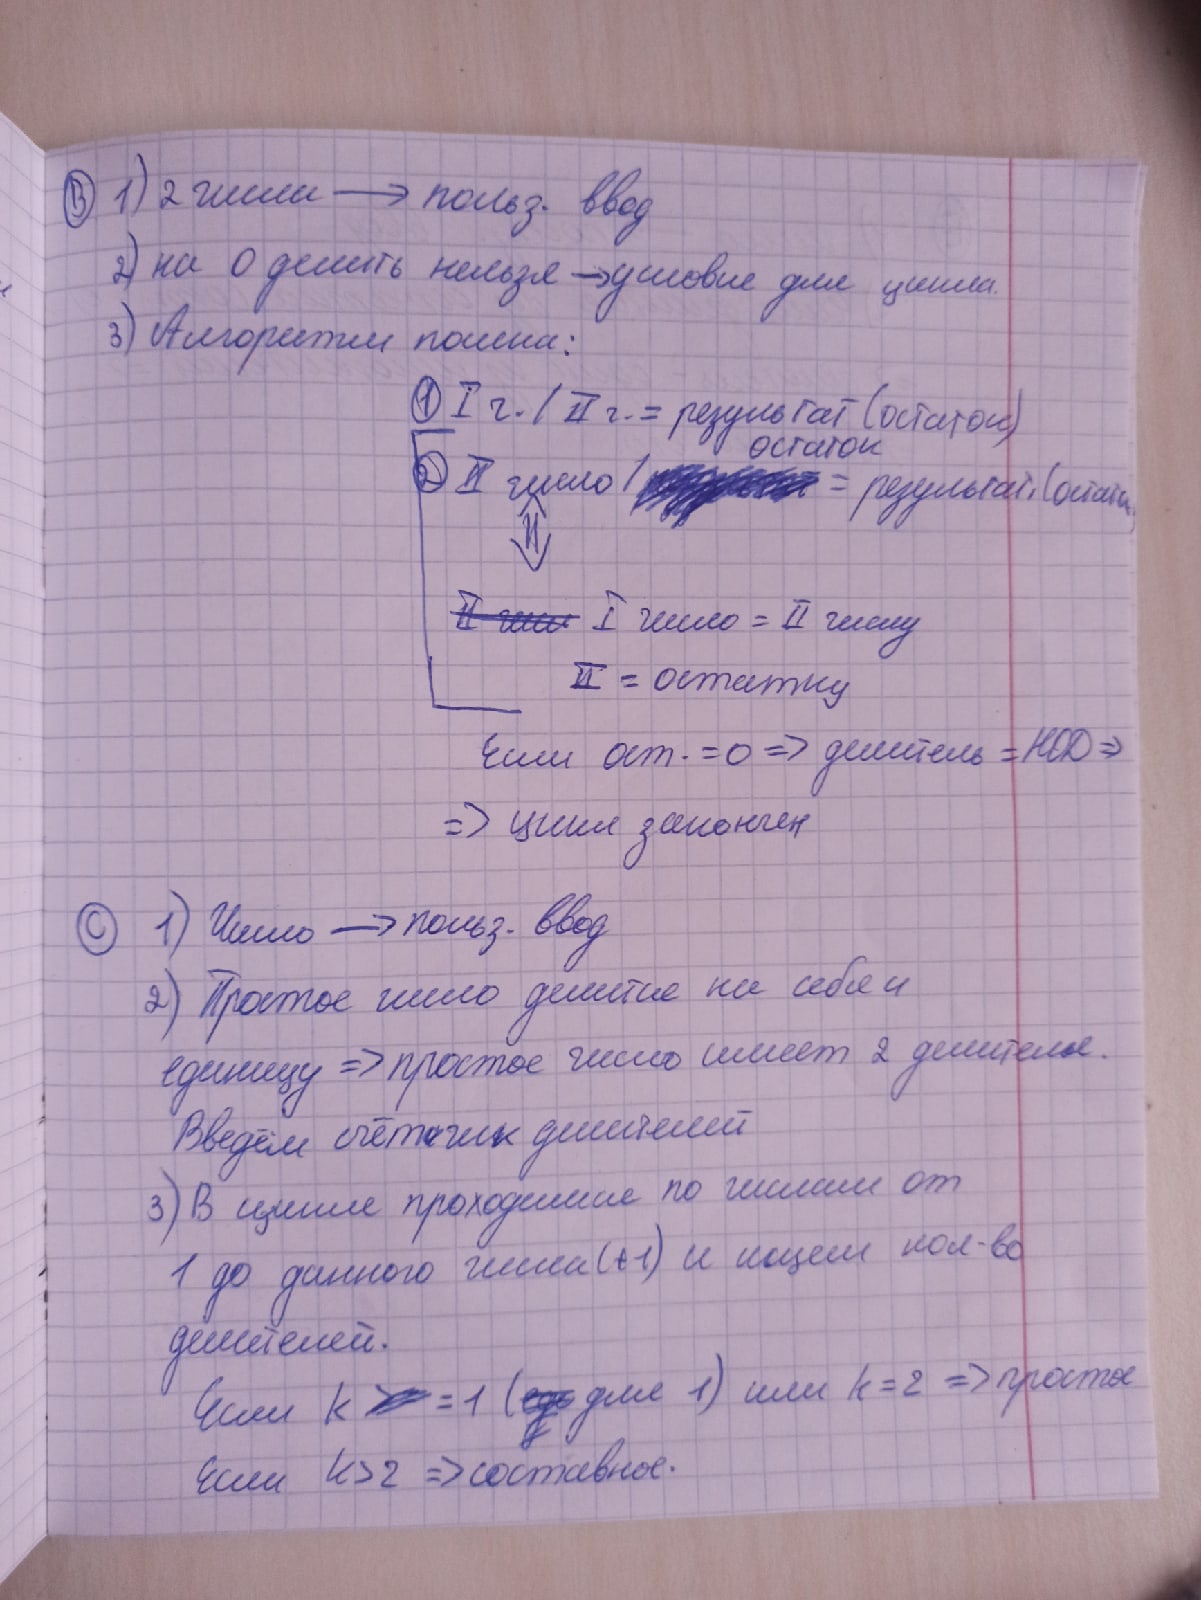 В 1) 2 числа → польз. ввод
2) на 0 делить нельзя → условие для цикла.
3) Алгоритм поиска:
① I ч. / II ч. = результат (остаток)
остаток
② II число / = результат, (остаток
I число = II числу
II = остатку
Если ост. = 0 => делитель = НОД =>
=> цикл закончен
С 1) Число → польз. ввод
2) Простое число делится на себя и
единицу => простое число имеет 2 делителя.
Введём счётчик делителей
3) В цикле проходимся по числам от
1 до данного числа (+1) и ищем кол-во
делителей.
Если k = 1 (для 1) или k = 2 => простое
Если k > 2 => составное.